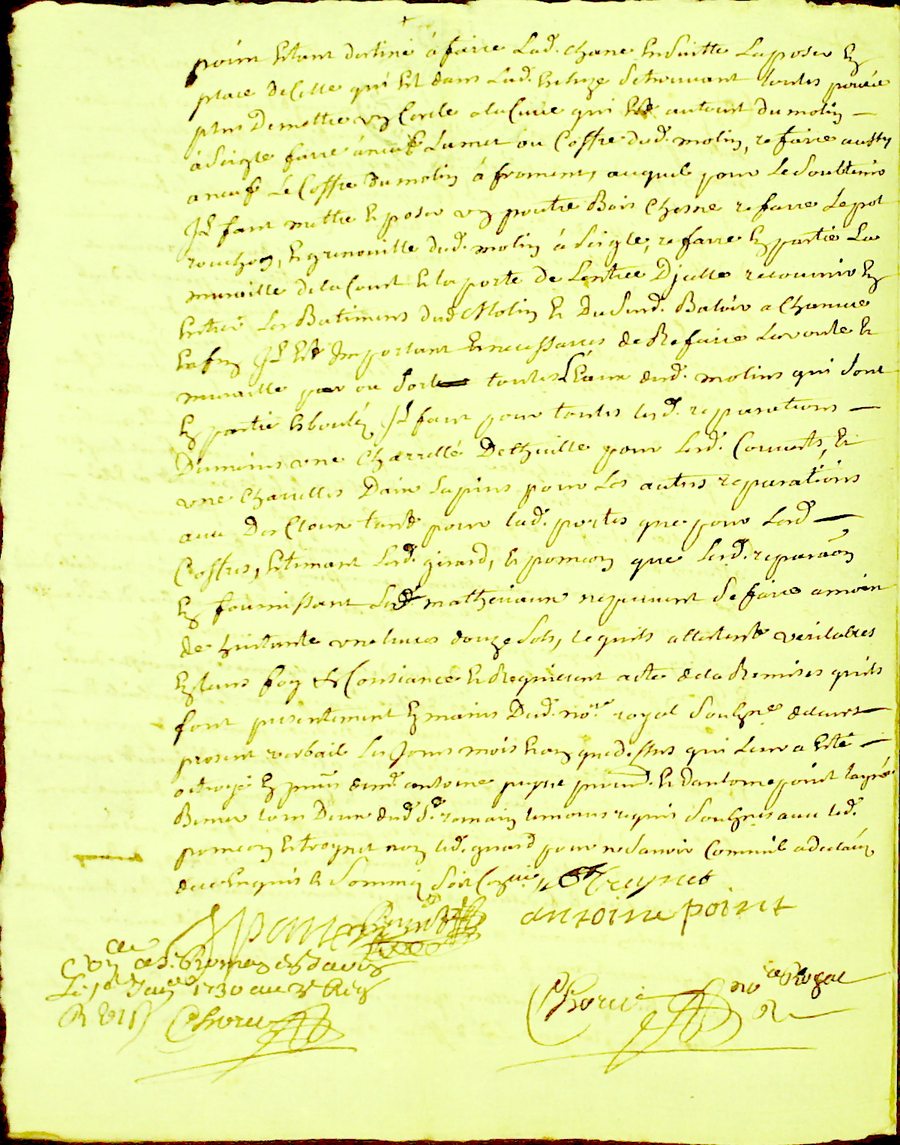 point estant destiné à faire lad. chane ensuitte la poser en
place de celle qui est dans lad. se trouvant toutes
plus de mettre un cercle a la cuve qui est autour du molin
à seigle faire à neuf la met ou coffre dud. molin, refaire aussy
a neuf le coffre du molin à froment, auquel pour le
Il faut mettre et poser un poutre bois chesne refaire le pot
rouchon, et grenouille dud. molin à seigle, refaire en partie la
muraille de la court et la porte de lentrée Djcelle recouvrir en
entier les Batimens dud. Molin et Du Batoir a chanvre
Enfin Il est Important et necessaires de Refaire la voute et
muraille par ou sort toutes l'Eaux desd. molins qui sont
en partie eboulés Il faut pour toutes lesd. reparations
Du moins une charretté De thuille pour lesd. Couverts, et
une charettes Dais sapins pour les autres reparations
avec Des Cloux tant pour lad. portes que pour lesd.
Coffres, estimant lesd. girard, et poncon que lesd. reparãon
en fournissant lesd. matheriaux ne peuvent se faire a moin
de huitante une livres douze sols, ce quils attestent veritables
en leurs foy et Consiance et Requierent acte de la Remises quils
font presentement en mains Dud. no.re royal soubsne. de leurs
present verbail les Jours mois et an que dessus qui leur a esté
octroyé en pnce de mre antoine et dantoine point
demeurants
poncon et treynet non led. girard pour ne savoir comme il a declaré
de ce enquis et sommé
Treynet
antoine point
no.re Royal
Chorel
Le Janer 1730 au 3e Reg
R 12 s
Chorel